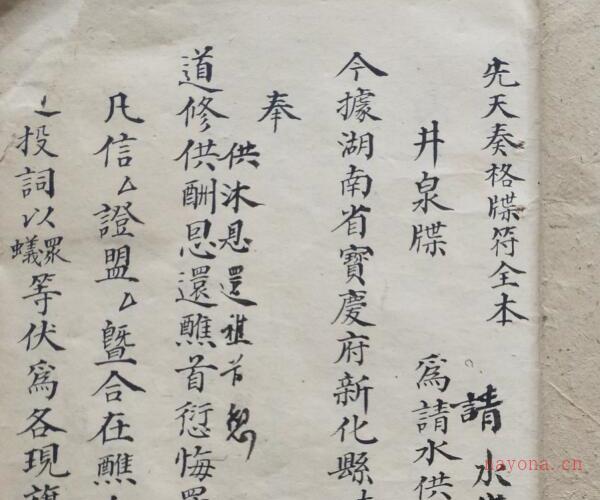 先天奏格牒符全本
請水供
井泉牒 為請水供
今據湖南省寶慶府新化縣
奉
供沐恩還醮首愆
道修供酬恩還醮首愆悔罪
凡信厶證盟厶暨合在醮
投詞以蟻眾等伏為各現
nayona.cn